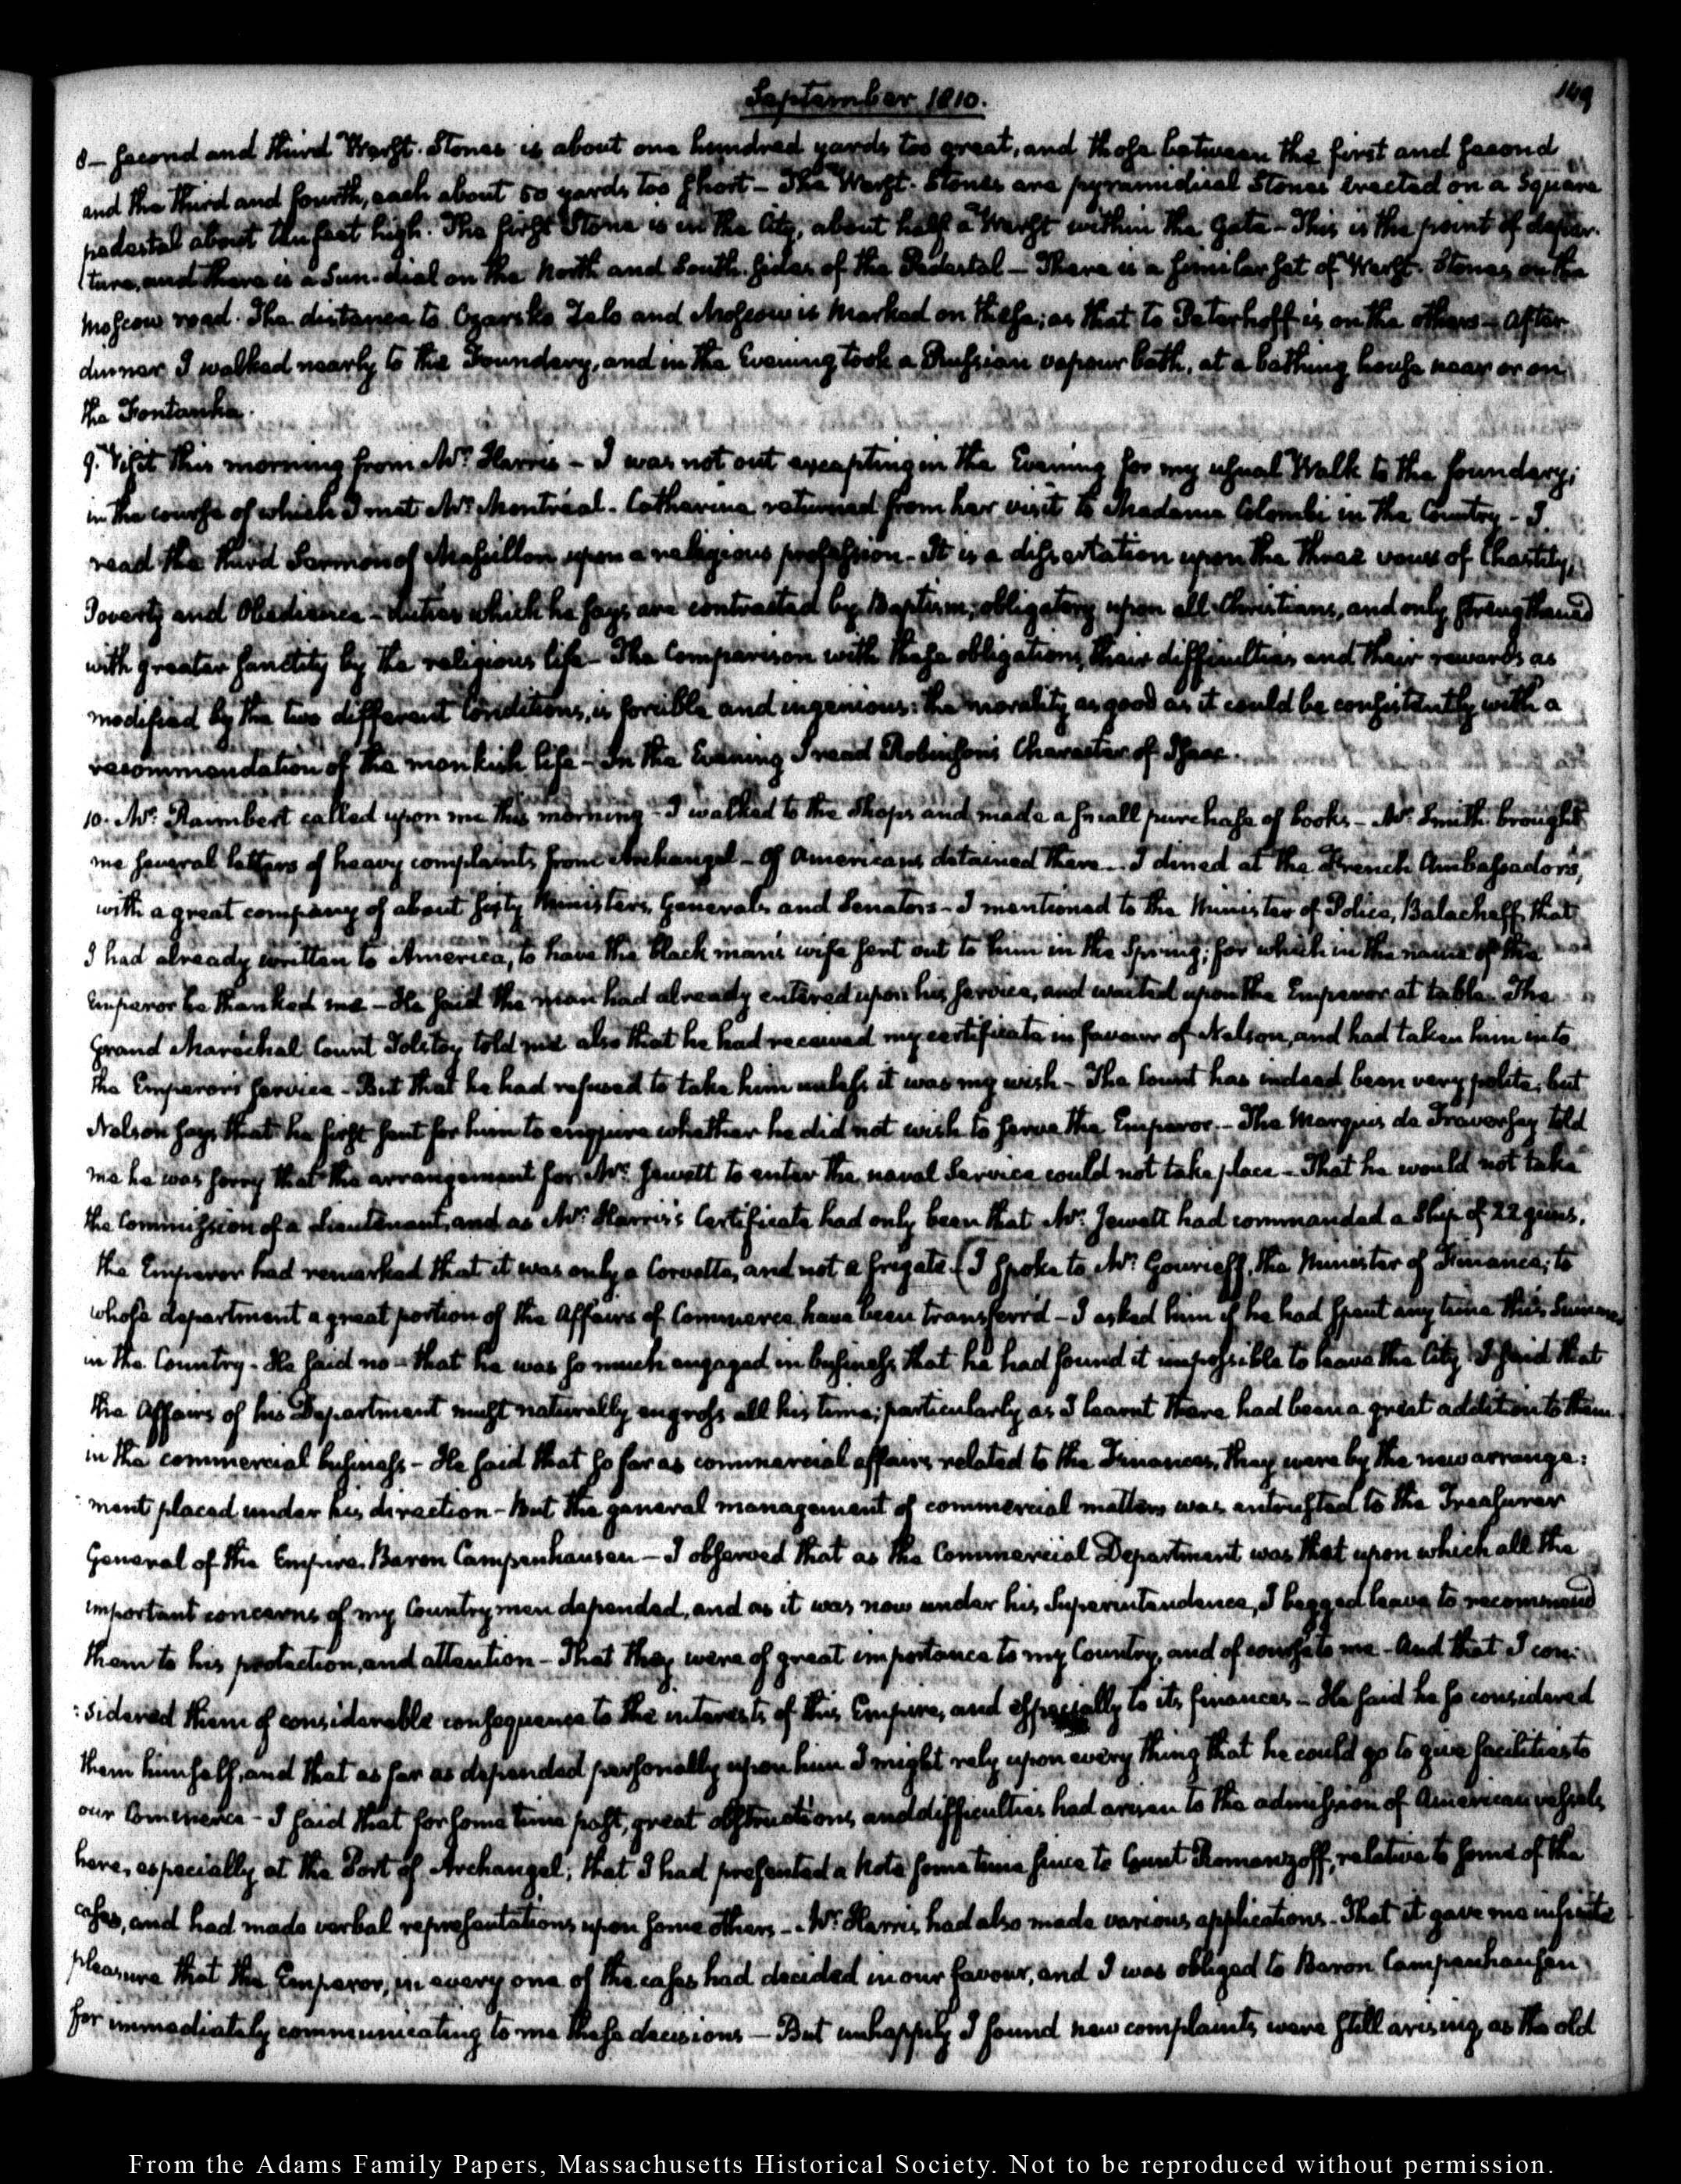 September 1810.
149
8— second and third Werst-Stones is about one hundred yards too great, and those between the first and second
and the third and fourth, each about 50 yards too short — The Werst-Stones are pyramidical Stones erected on a Square
pedestal about ten feet high. The first Stone is in the City, about half a Werst within the gate — This is the point of depar-
ture, and there is a Sun-dial on the North and South sides of the Pedestal — There is a similar set of Werst-Stones on the
Moscow road. The distance to Czarsko Zelo and Moscow is marked on these; as that to Peterhoff is on the others — After
dinner I walked nearly to the Foundery, and in the Evening took a Russian vapour bath, at a bathing house near or on
the Fontanka.
9. Visit this morning from Mr. Harris — I was not out excepting in the Evening for my usual Walk to the foundery;
in the course of which I met Mr. Montréal. Catherine returned from her visit to Madame Colombi in the Country — I
read the third Sermon of Massillon upon a religious profession — It is a dissertation upon the three vows of Chastity,
Poverty and Obedience — duties which he says are contracted by Baptism; obligatory upon all Christians, and only strengthened
with greater sanctity by the religious life — The Comparison with these obligations, their difficulties and their rewards as
modified by the two different Conditions, is forcible and ingenious: the morality as good as it could be consistently with a
recommendation of the monkish life — In the Evening I read Robinson's Character of Isaac.
10. Mr. Raimbert called upon me this morning — I walked to the Shops and made a small purchase of books — Mr. Smith brought
me several letters of heavy complaints from Archangel — of Americans detained there — I dined at the French Ambassador's,
with a great company of about sixty Ministers, Generals and Senators — I mentioned to the Minister of Police, Balacheff, that
I had already written to America, to have the black man's wife sent out to him in the Spring; for which in the name of the
Emperor he thanked me — He said the man had already entered upon his service, and waited upon the Emperor at table. The
Grand Maréchal Count Tolstoy told me also that he had received my certificate in favour of Nelson, and had taken him into
the Emperor's service — But that he had refused to take him unless it was my wish — The Count has indeed been very polite; but
Nelson says that he first sent for him to enquire whether he did not wish to serve the Emperor — The Marquis de Traversay told
me he was sorry that the arrangement for Mr. Jewett to enter the naval Service could not take place — That he would not take
the Commission of a Lieutenant, and as Mr. Harris's Certificate had only been that Mr. Jewett had commanded a Ship of 22 guns,
the Emperor had remarked that it was only a Corvette, and not a frigate. (I spoke to Mr. Gourieff, the Minister of Finance; to
whose department a great portion of the Affairs of Commerce have been transferr'd — I asked him if he had spent any time this Summer
in the Country — He said no — that he was so much engaged in business, that he had found it impossible to leave the City. I said that
the Affairs of his Department must naturally engross all his time; particularly as I learnt there had been a great addition to them
in the commercial business — He said that so far as commercial affairs related to the Finances, they were by the new arrange:
ment placed under his direction — But the general management of commercial matters was entrusted to the Treasurer
General of the Empire, Baron Campenhausen — I observed that as the Commercial Department was that upon which all the
important concerns of my Countrymen depended, and as it was now under his Superintendence, I begged leave to recommend
them to his protection, and attention — That they were of great importance to my Country, and of course to me — And that I con:
:sidered them of considerable consequence to the interests of this Empire, and especially to its finances — He said he so considered
them himself, and that as far as depended personally upon him I might rely upon every thing that he could go to give facilities to
our Commerce — I said that for some time past, great obstructions and difficulties had arisen to the admission of American vessels
here, especially at the Port of Archangel; that I had presented a Note some time since to Count Romanzoff, relative to some of the
cases, and had made verbal representations upon some others — Mr. Harris had also made various applications. That it gave me infinite
pleasure that the Emperor, in every one of the cases had decided in our favour, and I was obliged to Baron Campenhausen
for immediately communicating to me these decisions — But unhappily I found new complaints were still arising, as the old
From the Adams Family Papers, Massachusetts Historical Society. Not to be reproduced without permission.